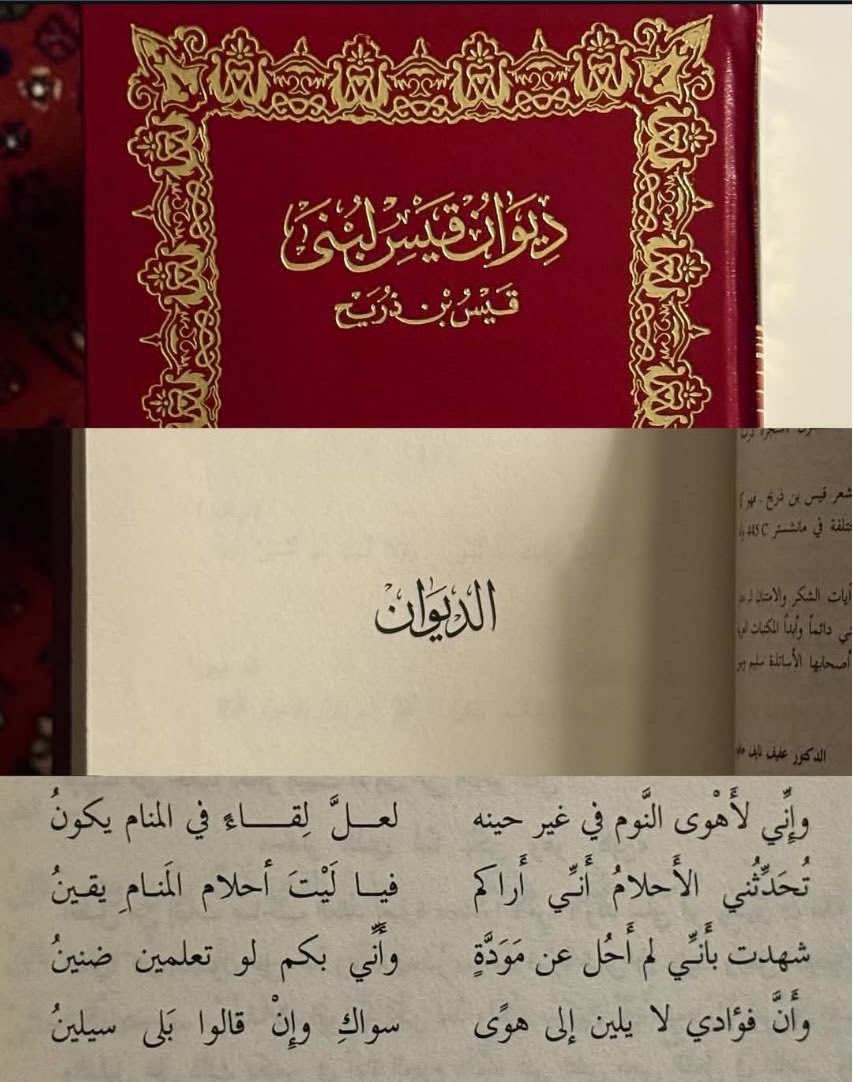 ديوان قيس لبنى
قيس بن ذريح
شعر قيس بن ذريح. فهو
ختلفة في مانشستر 445C
الديوان
آيات الشكر والامتنان
دائماً وأبداً المكتبات
أصحابها الأساتذة سليم
الدكتور عفيف نايف
وإِنِّي لأَهْوى النَّوم في غير حينه لعلَّ لِقاءً في المنام يكونُ
تُحَدِّثُني الأَحلامُ أَنِّي أَراكم فيا لَيْتَ أحلام المَنامِ يقينُ
شهدت بأَنِّي لم أَحُل عن مَوَدَّةٍ وأَنِّي بكم لو تعلمين ضنينُ
وأَنَّ فؤادي لا يلين إلى هوًى سواكِ وإِنْ قالوا بَلى سيلينُ